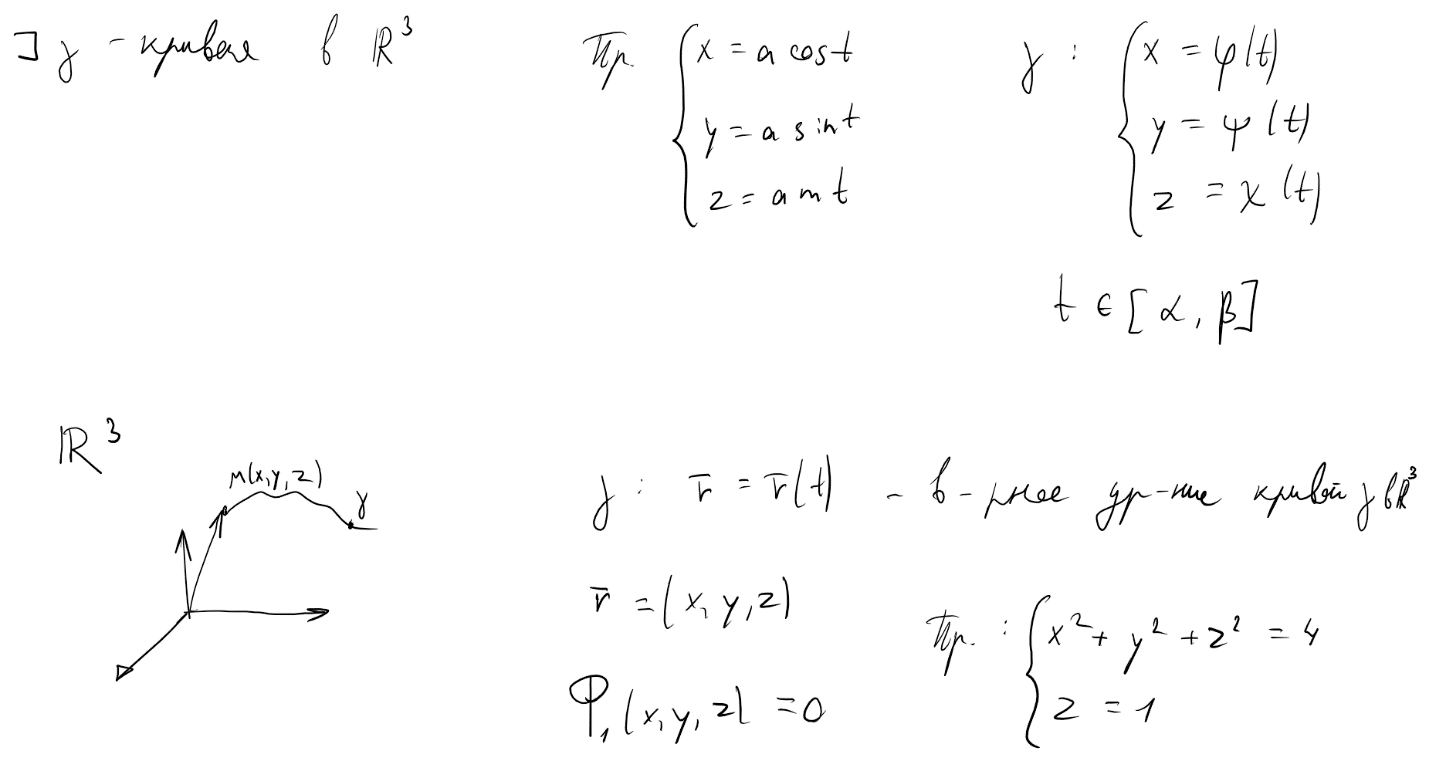 ∃ γ - кривая в ℝ³
Пр. { x = a cos t
y = a sin t
z = a m t
γ : { x = φ(t)
y = ψ(t)
z = χ(t)
t ∈ [α, β]
ℝ³
M(x,y,z)
γ
γ : r̄ = r̄(t) - в-рное ур-ние кривой γ в ℝ³
r̄ = (x, y, z)
Φ₁(x, y, z) = 0
Пр. : { x² + y² + z² = 4
z = 1